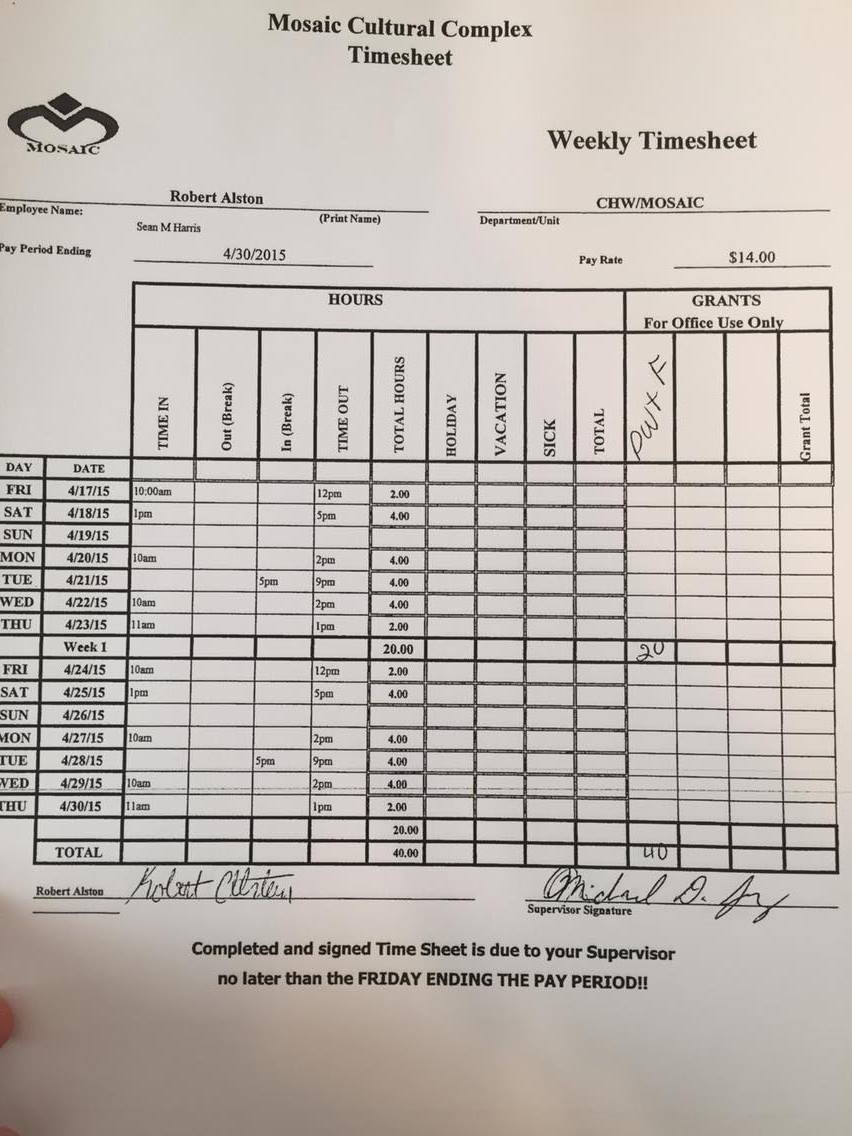 Mosaic Cultural Complex
Timesheet
MOSAIC
Weekly Timesheet
Robert Alston CHW/MOSAIC
Employee Name: (Print Name) Department/Unit
Sean M Harris
Pay Period Ending 4/30/2015 Pay Rate $14.00
HOURS GRANTS
For Office Use Only
TIME IN Out (Break) In (Break) TIME OUT TOTAL HOURS HOLIDAY VACATION SICK TOTAL Grant Total
DAY DATE
FRI 4/17/15 10:00am 12pm 2.00
SAT 4/18/15 1pm 5pm 4.00
SUN 4/19/15
MON 4/20/15 10am 2pm 4.00
TUE 4/21/15 5pm 9pm 4.00
WED 4/22/15 10am 2pm 4.00
THU 4/23/15 11am 1pm 2.00
Week 1 20.00 20
FRI 4/24/15 10am 12pm 2.00
SAT 4/25/15 1pm 5pm 4.00
SUN 4/26/15
MON 4/27/15 10am 2pm 4.00
TUE 4/28/15 5pm 9pm 4.00
WED 4/29/15 10am 2pm 4.00
THU 4/30/15 11am 1pm 2.00
20.00
TOTAL 40.00 40
Robert Alston Robert Alston Michael D.
Supervisor Signature
Completed and signed Time Sheet is due to your Supervisor
no later than the FRIDAY ENDING THE PAY PERIOD!!